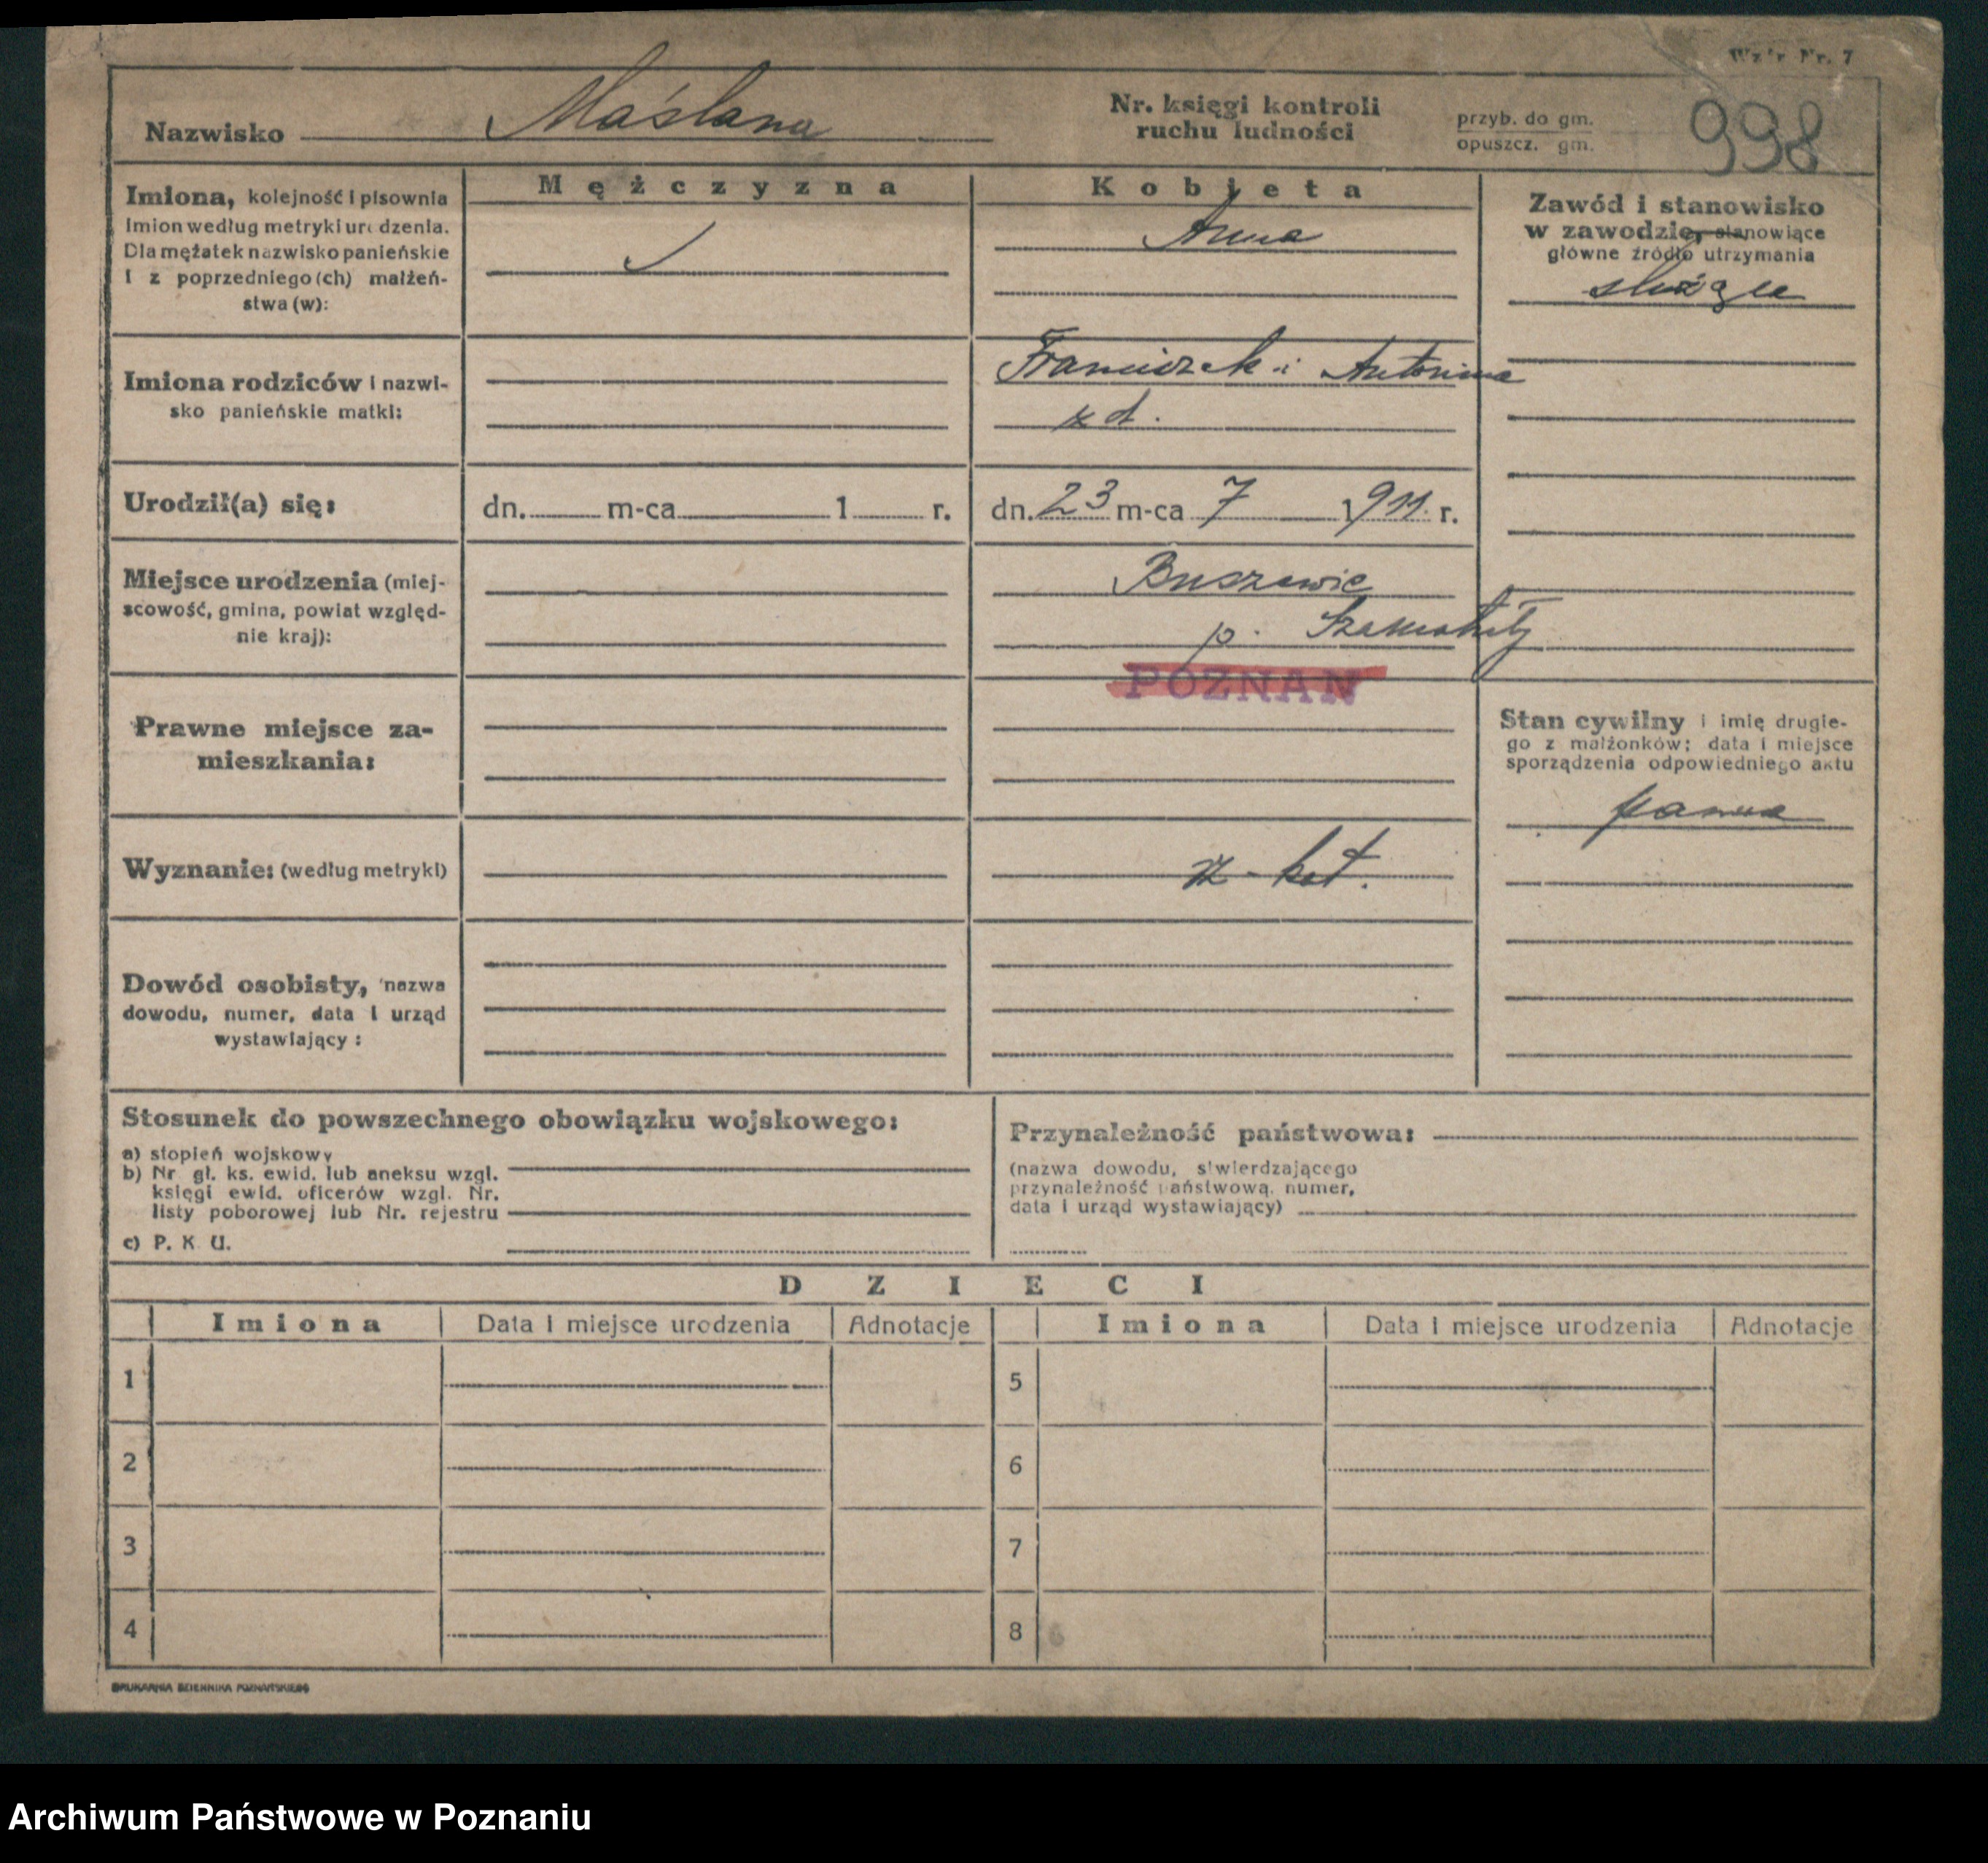 Wzór Nr. 7
Nazwisko Maślana
Nr. księgi kontroli
ruchu ludności
przyb. do gm.
opuszcz. gm.
998
Imiona, kolejność i pisownia
imion według metryki urodzenia.
Dla mężatek nazwisko panieńskie
i z poprzedniego (ch) małżeń-
stwa (w):
Mężczyzna
Kobieta
Anna
Zawód i stanowisko
w zawodzie, stanowiące
główne źródło utrzymania
służąca
Imiona rodziców i nazwi-
sko panieńskie matki:
Franciszek i Antonina
z d.
Urodził(a) się:
dn. m-ca 1 r.
dn. 23 m-ca 7 1911 r.
Miejsce urodzenia (miej-
scowość, gmina, powiat względ-
nie kraj):
Buszewie
p. Szamotuły
POZNAŃ
Prawne miejsce za-
mieszkania:
Stan cywilny i imię drugie-
go z małżonków; data i miejsce
sporządzenia odpowiedniego aktu
panna
Wyznanie: (według metryki)
rz-kat.
Dowód osobisty, nazwa
dowodu, numer, data i urząd
wystawiający:
Stosunek do powszechnego obowiązku wojskowego:
a) stopień wojskowy
b) Nr gł. ks. ewid. lub aneksu wzgl.
księgi ewid. oficerów wzgl. Nr.
listy poborowej lub Nr. rejestru
c) P. K. U.
Przynależność państwowa:
(nazwa dowodu, stwierdzającego
przynależność państwową, numer,
data i urząd wystawiający)
DZIECI
Imiona Data i miejsce urodzenia Adnotacje Imiona Data i miejsce urodzenia Adnotacje
1 5
2 6
3 7
4 8
DRUKARNIA DZIENNIKA POZNAŃSKIEGO
Archiwum Państwowe w Poznaniu